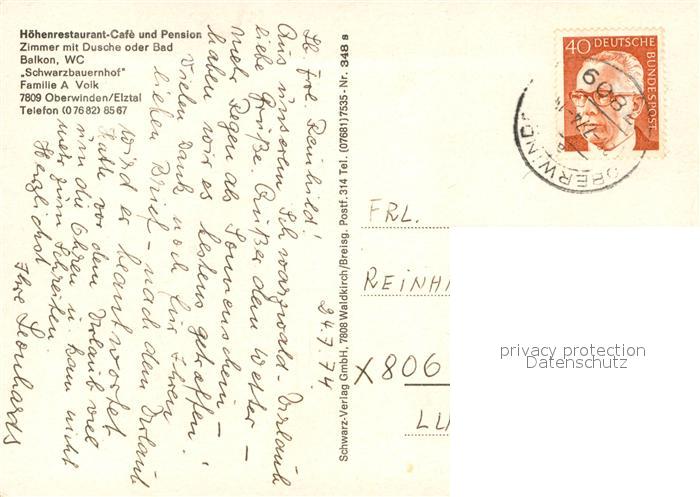 Höhenrestaurant-Cafè und Pension
Zimmer mit Dusche oder Bad
Balkon, WC
„Schwarzbauernhof"
Familie A Volk
7809 Oberwinden/Elztal
Telefon (07682) 8567
24.7.74
Lb. Frl. Reinhild!
Aus unserem Schwarzwald-Urlaub
liebe Grüße. Außer dem Wetter –
mehr Regen als Sonnenschein –
haben wir es bestens getroffen!
Vielen Dank noch für Ihren
lieben Brief – nach dem Urlaub
wird er beantwortet.
Hatte vor dem Urlaub viel
um die Ohren u. kam nicht
mehr zum Schreiben.
Herzlichst
Ihre Leonhards
Schwarz-Verlag GmbH, 7808 Waldkirch/Breisg. Postf. 314 Tel. (07681) 7535 - Nr. 348 s
40 DEUTSCHE
BUNDESPOST
7809
OBERWIND
FRL.
REINHI
X 806
LU
privacy protection
Datenschutz